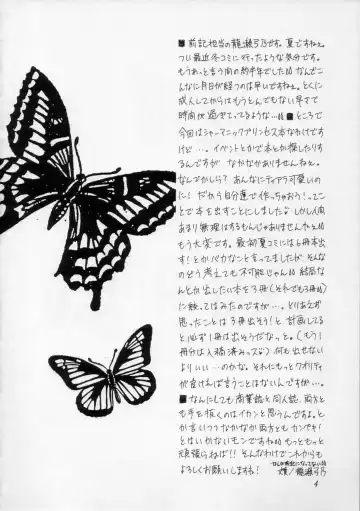 ■前記担当の龍瀬弓乃です。夏ですねぇ。
つい最近冬コミに行ったような気分です。
もうあっと言う間の約半年でした。なんでこ
んなに月日が経つのは早いですねぇ。とくに
成人してからはもうとんでもない早さで
時間が過ぎてってるような…。■ところで
今回はシャーマニックプリンセス本なわけです
けど…。イベントとかで本とか探したりす
るんですが なかなかありませんねぇ。
なんでかしら？ あんなにティアラ可愛いの
に！ だから自分達で作っちゃおう！ってこ
とで本を出すことにしましたな。しかし人間
あまり無理はするもんじゃありませんねぇ
もう大変です。最初夏コミには4冊本出
す！とかバカなこと言ってましたが そんな
のどう考えても不可能じゃん。結局な
んとか出したい本を3冊(それでも3冊)
に絞ってはみたのですが…。とりあえず
思ったことは3冊出そう！と計画してる
と必ず1冊は出そうだなっと。(もう1
冊分は入稿済みっスな) 何も出せない
よりいい…のかな。それにもっとクオリティ
が良ければ言うことはないんですが…。
■なんにしても商業誌と同人誌、両方と
も手を抜くのはイカンと思うんですよ。と
か言いつつなかなか両方ともカンペキ！
とはいかないモンですね。もっともっと
頑張らねば!! そんなわけでこれからも
よろしくお願いしますね！
龍瀬弓乃
4